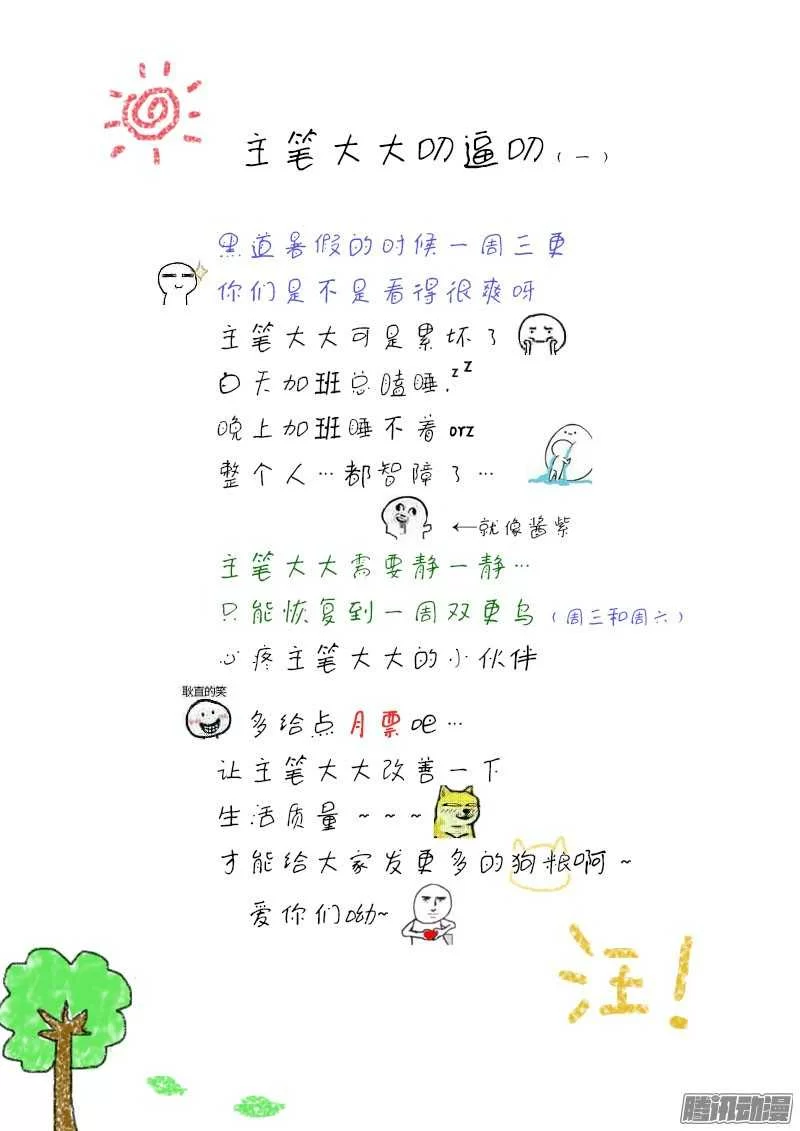 主笔大大叨逼叨（一）
黑道暑假的时候一周三更
你们是不是看得很爽呀
主笔大大可是累坏了
白天加班总瞌睡.zZ
晚上加班睡不着orz
整个人…都智障了…
←就像酱紫
主笔大大需要静一静…
只能恢复到一周双更乌（周三和周六）
心疼主笔大大的小伙伴
耿直的笑
多给点月票吧…
让主笔大大改善一下
生活质量~~~
才能给大家发更多的狗粮啊~
爱你们呦~
汪！
腾讯动漫